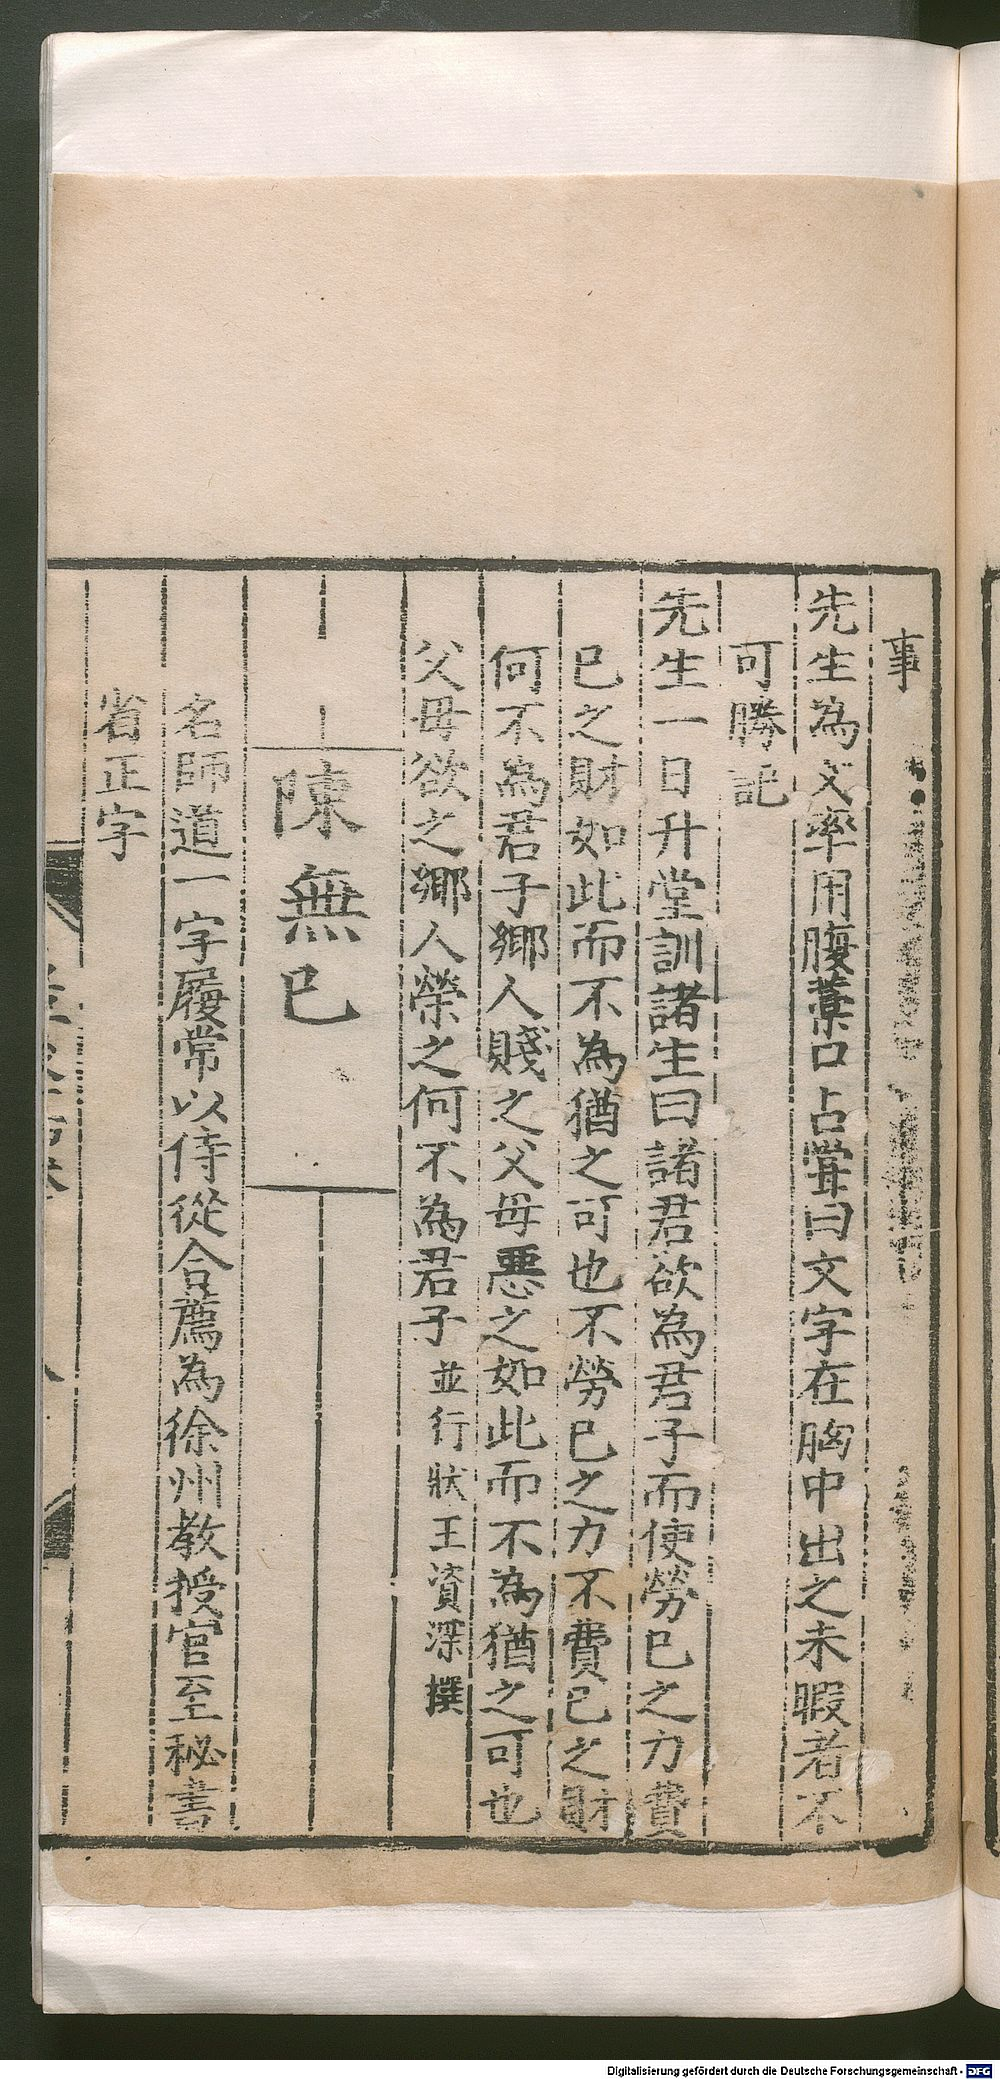 事
先生為文率用腹藁口占嘗曰文字在胸中出之未暇者不
可勝記
先生一日升堂訓諸生曰諸君欲為君子而使勞已之力費
已之財如此而不為猶之可也不勞已之力不費已之財
何不為君子鄉人賤之父母惡之如此而不為猶之可也
父母欲之鄉人榮之何不為君子並行狀王資深撰
陳無已
名師道一字履常以侍從合薦為徐州教授官至秘書
省正字
Digitalisierung gefördert durch die Deutsche Forschungsgemeinschaft - DFG